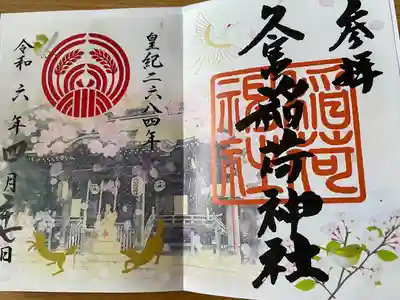 参拝
久富稲荷神社
稲荷神社
皇紀二六八四年
令和六年四月 七日